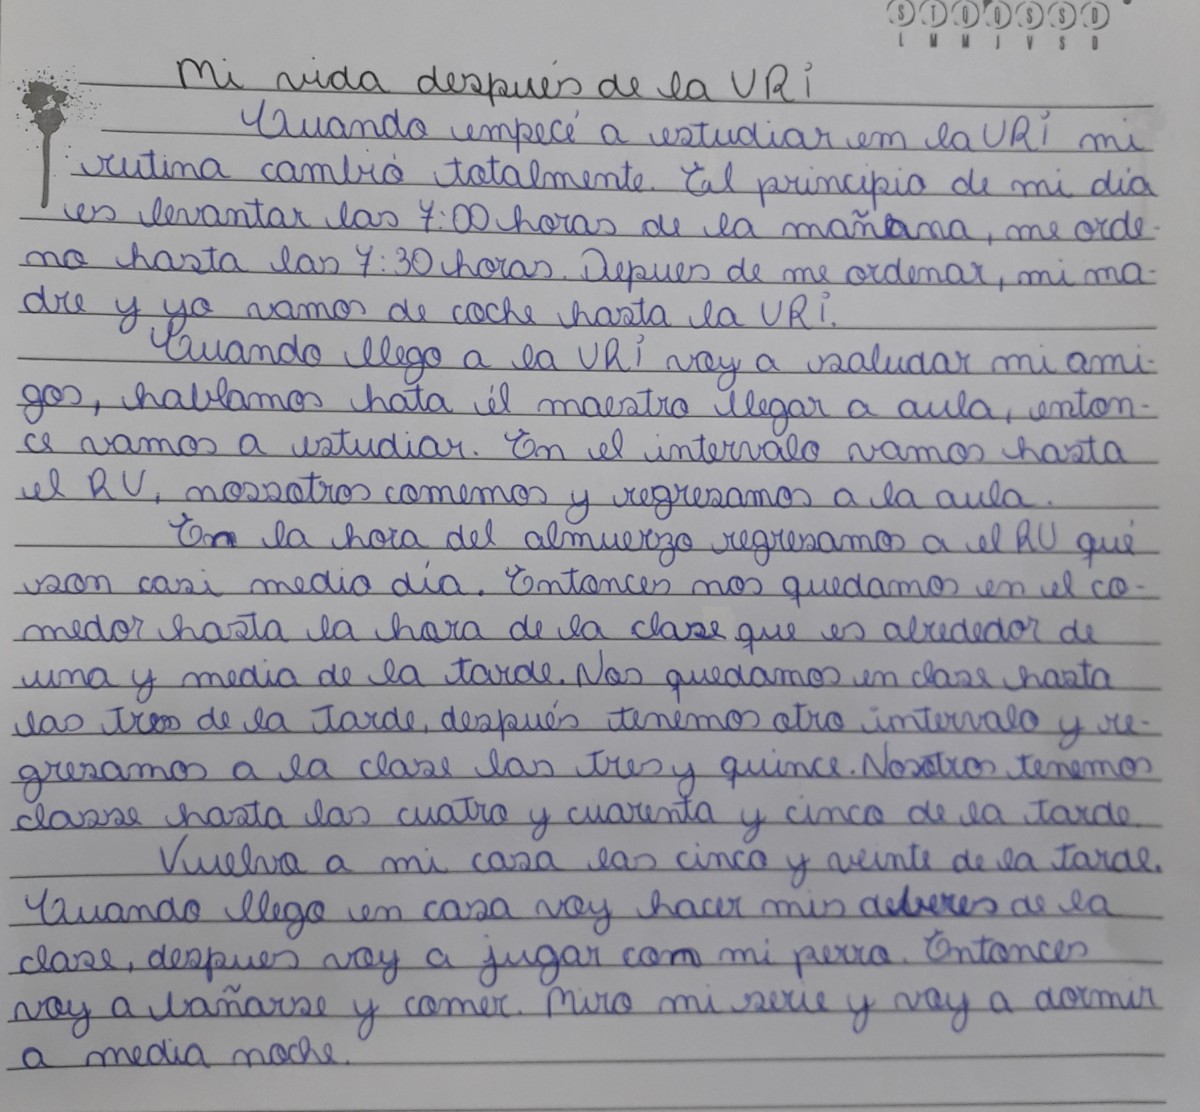 S T Q Q S S D
L M M J V S D
Mi vida después de la URI
Cuando empecé a estudiar em la URI mi
rutina cambió totalmente. El principio de mi día
es levantar las 7:00 horas de la mañana, me orde-
no hasta las 7:30 horas. Depues de me ordenar, mi ma-
dre y yo vamos de coche hasta la URI.
Cuando llego a la URI voy a saludar mi ami-
gos, hablamos hata él maestro llegar a aula, enton-
ce vamos a estudiar. En el intervalo vamos hasta
el RU, nossotros comemos y regresamos a la aula.
En la hora del almuerzo regresamos a el RU qué
son casi medio día. Entonces nos quedamos en el co-
medor hasta la hora de la clase que es alrededor de
uma y media de la tarde. Nos quedamos en clase hasta
las tres de la tarde, después tenemos otro intervalo y re-
gresamos a la clase las tres y quince. Nosotros tenemos
classe hasta las cuatro y cuarenta y cinco de la tarde.
Vuelvo a mi casa las cinco y veinte de la tarde.
Cuando llego en casa voy hacer mis deberes de la
clase, despues voy a jugar com mi perro. Entonces
voy a bañarse y comer. Miro mi serie y voy a dormir
a media noche.